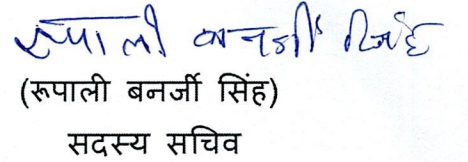 रूपाली बनर्जी सिंह
(रूपाली बनर्जी सिंह)
सदस्य सचिव